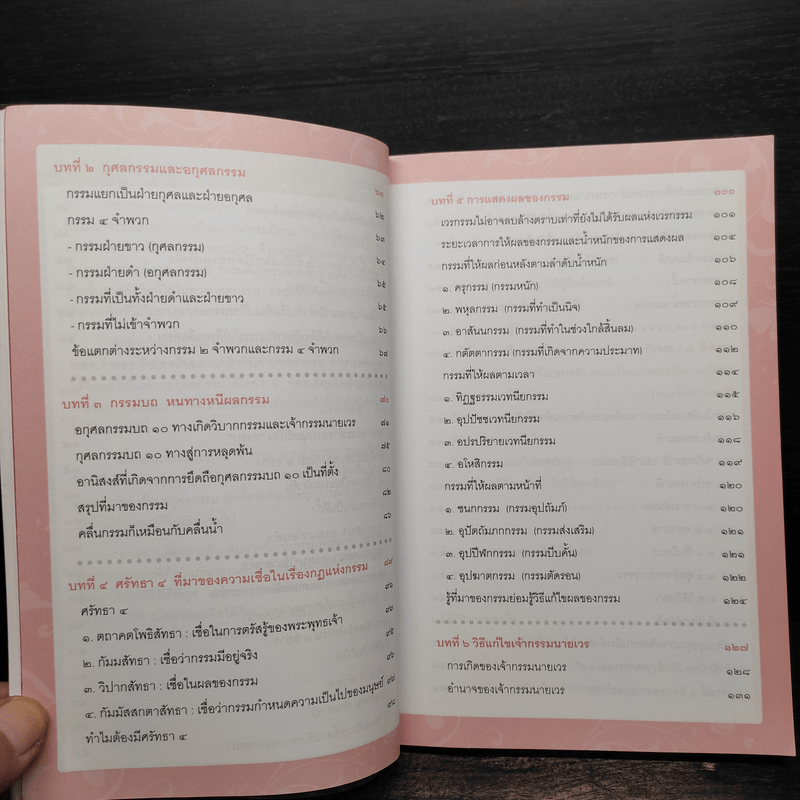 บทที่ ๒ กุศลกรรมและอกุศลกรรม ๖๑
กรรมแยกเป็นฝ่ายกุศลและฝ่ายอกุศล ๖๒
กรรม ๔ จำพวก ๖๓
- กรรมฝ่ายขาว (กุศลกรรม) ๖๔
- กรรมฝ่ายดำ (อกุศลกรรม) ๖๕
- กรรมที่เป็นทั้งฝ่ายดำและฝ่ายขาว ๖๕
- กรรมที่ไม่เข้าจำพวก ๖๖
ข้อแตกต่างระหว่างกรรม ๒ จำพวกและกรรม ๔ จำพวก ๖๗
บทที่ ๓ กรรมบถ หนทางหนีผลกรรม ๗๐
อกุศลกรรมบถ ๑๐ ทางเกิดวิบากกรรมและเจ้ากรรมนายเวร ๗๑
กุศลกรรมบถ ๑๐ ทางสู่การหลุดพ้น ๗๕
อานิสงส์ที่เกิดจากการยึดถือกุศลกรรมบถ ๑๐ เป็นที่ตั้ง ๘๐
สรุปที่มาของกรรม ๘๒
คลื่นกรรมก็เหมือนกับคลื่นน้ำ ๘๖
บทที่ ๔ ศรัทธา ๔ ที่มาของความเชื่อในเรื่องกฎแห่งกรรม ๘๙
ศรัทธา ๔ ๙๑
๑. ตถาคตโพธิสัทธา : เชื่อในการตรัสรู้ของพระพุทธเจ้า ๙๓
๒. กัมมสัทธา : เชื่อว่ากรรมมีอยู่จริง ๙๕
๓. วิปากสัทธา : เชื่อในผลของกรรม ๙๖
๔. กัมมัสสกตาสัทธา : เชื่อว่ากรรมกำหนดความเป็นไปของมนุษย์ ๙๗
ทำไมต้องมีศรัทธา ๔ ๙๘
บทที่ ๕ การแสดงผลของกรรม ๑๐๐
เวรกรรมไม่อาจลบล้างตราบเท่าที่ยังไม่ได้รับผลแห่งเวรกรรม ๑๐๑
ระยะเวลาการให้ผลของกรรมและน้ำหนักของการแสดงผล ๑๐๔
กรรมที่ให้ผลก่อนหลังตามลำดับน้ำหนัก ๑๐๖
๑. ครุกรรม (กรรมหนัก) ๑๐๘
๒. พหุลกรรม (กรรมที่ทำเป็นนิจ) ๑๐๙
๓. อาสันนกรรม (กรรมที่ทำในช่วงใกล้สิ้นลม) ๑๑๐
๔. กตัตตากรรม (กรรมที่เกิดจากความประมาท) ๑๑๒
กรรมที่ให้ผลตามเวลา ๑๑๔
๑. ทิฏฐธรรมเวทนียกรรม ๑๑๕
๒. อุปปัชชเวทนียกรรม ๑๑๖
๓. อปรปริยายเวทนียกรรม ๑๑๘
๔. อโหสิกรรม ๑๑๙
กรรมที่ให้ผลตามหน้าที่ ๑๒๐
๑. ชนกกรรม (กรรมอุปถัมภ์) ๑๒๐
๒. อุปัตถัมภกกรรม (กรรมส่งเสริม) ๑๒๑
๓. อุปปีฬกกรรม (กรรมบีบคั้น) ๑๒๑
๔. อุปฆาตกรรม (กรรมตัดรอน) ๑๒๒
รู้ที่มาของกรรมย่อมรู้วิธีแก้ไขผลของกรรม ๑๒๔
บทที่ ๖ วิธีแก้ไขเจ้ากรรมนายเวร ๑๒๗
การเกิดของเจ้ากรรมนายเวร ๑๒๘
อำนาจของเจ้ากรรมนายเวร ๑๓๑